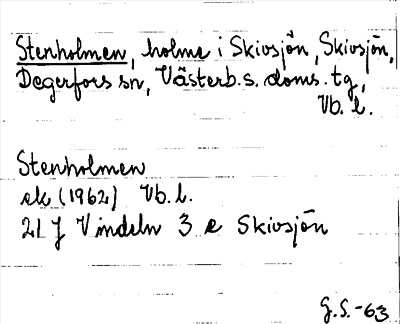 Stenholmen, holme i Skivsjön, Skivsjön,
Degerfors sn, Västerb. s. doms. tg,
Vb. l.
Stenholmen
ek (1962) Vb. l.
21 J Vindeln 3 e Skivsjön
G.S. -63